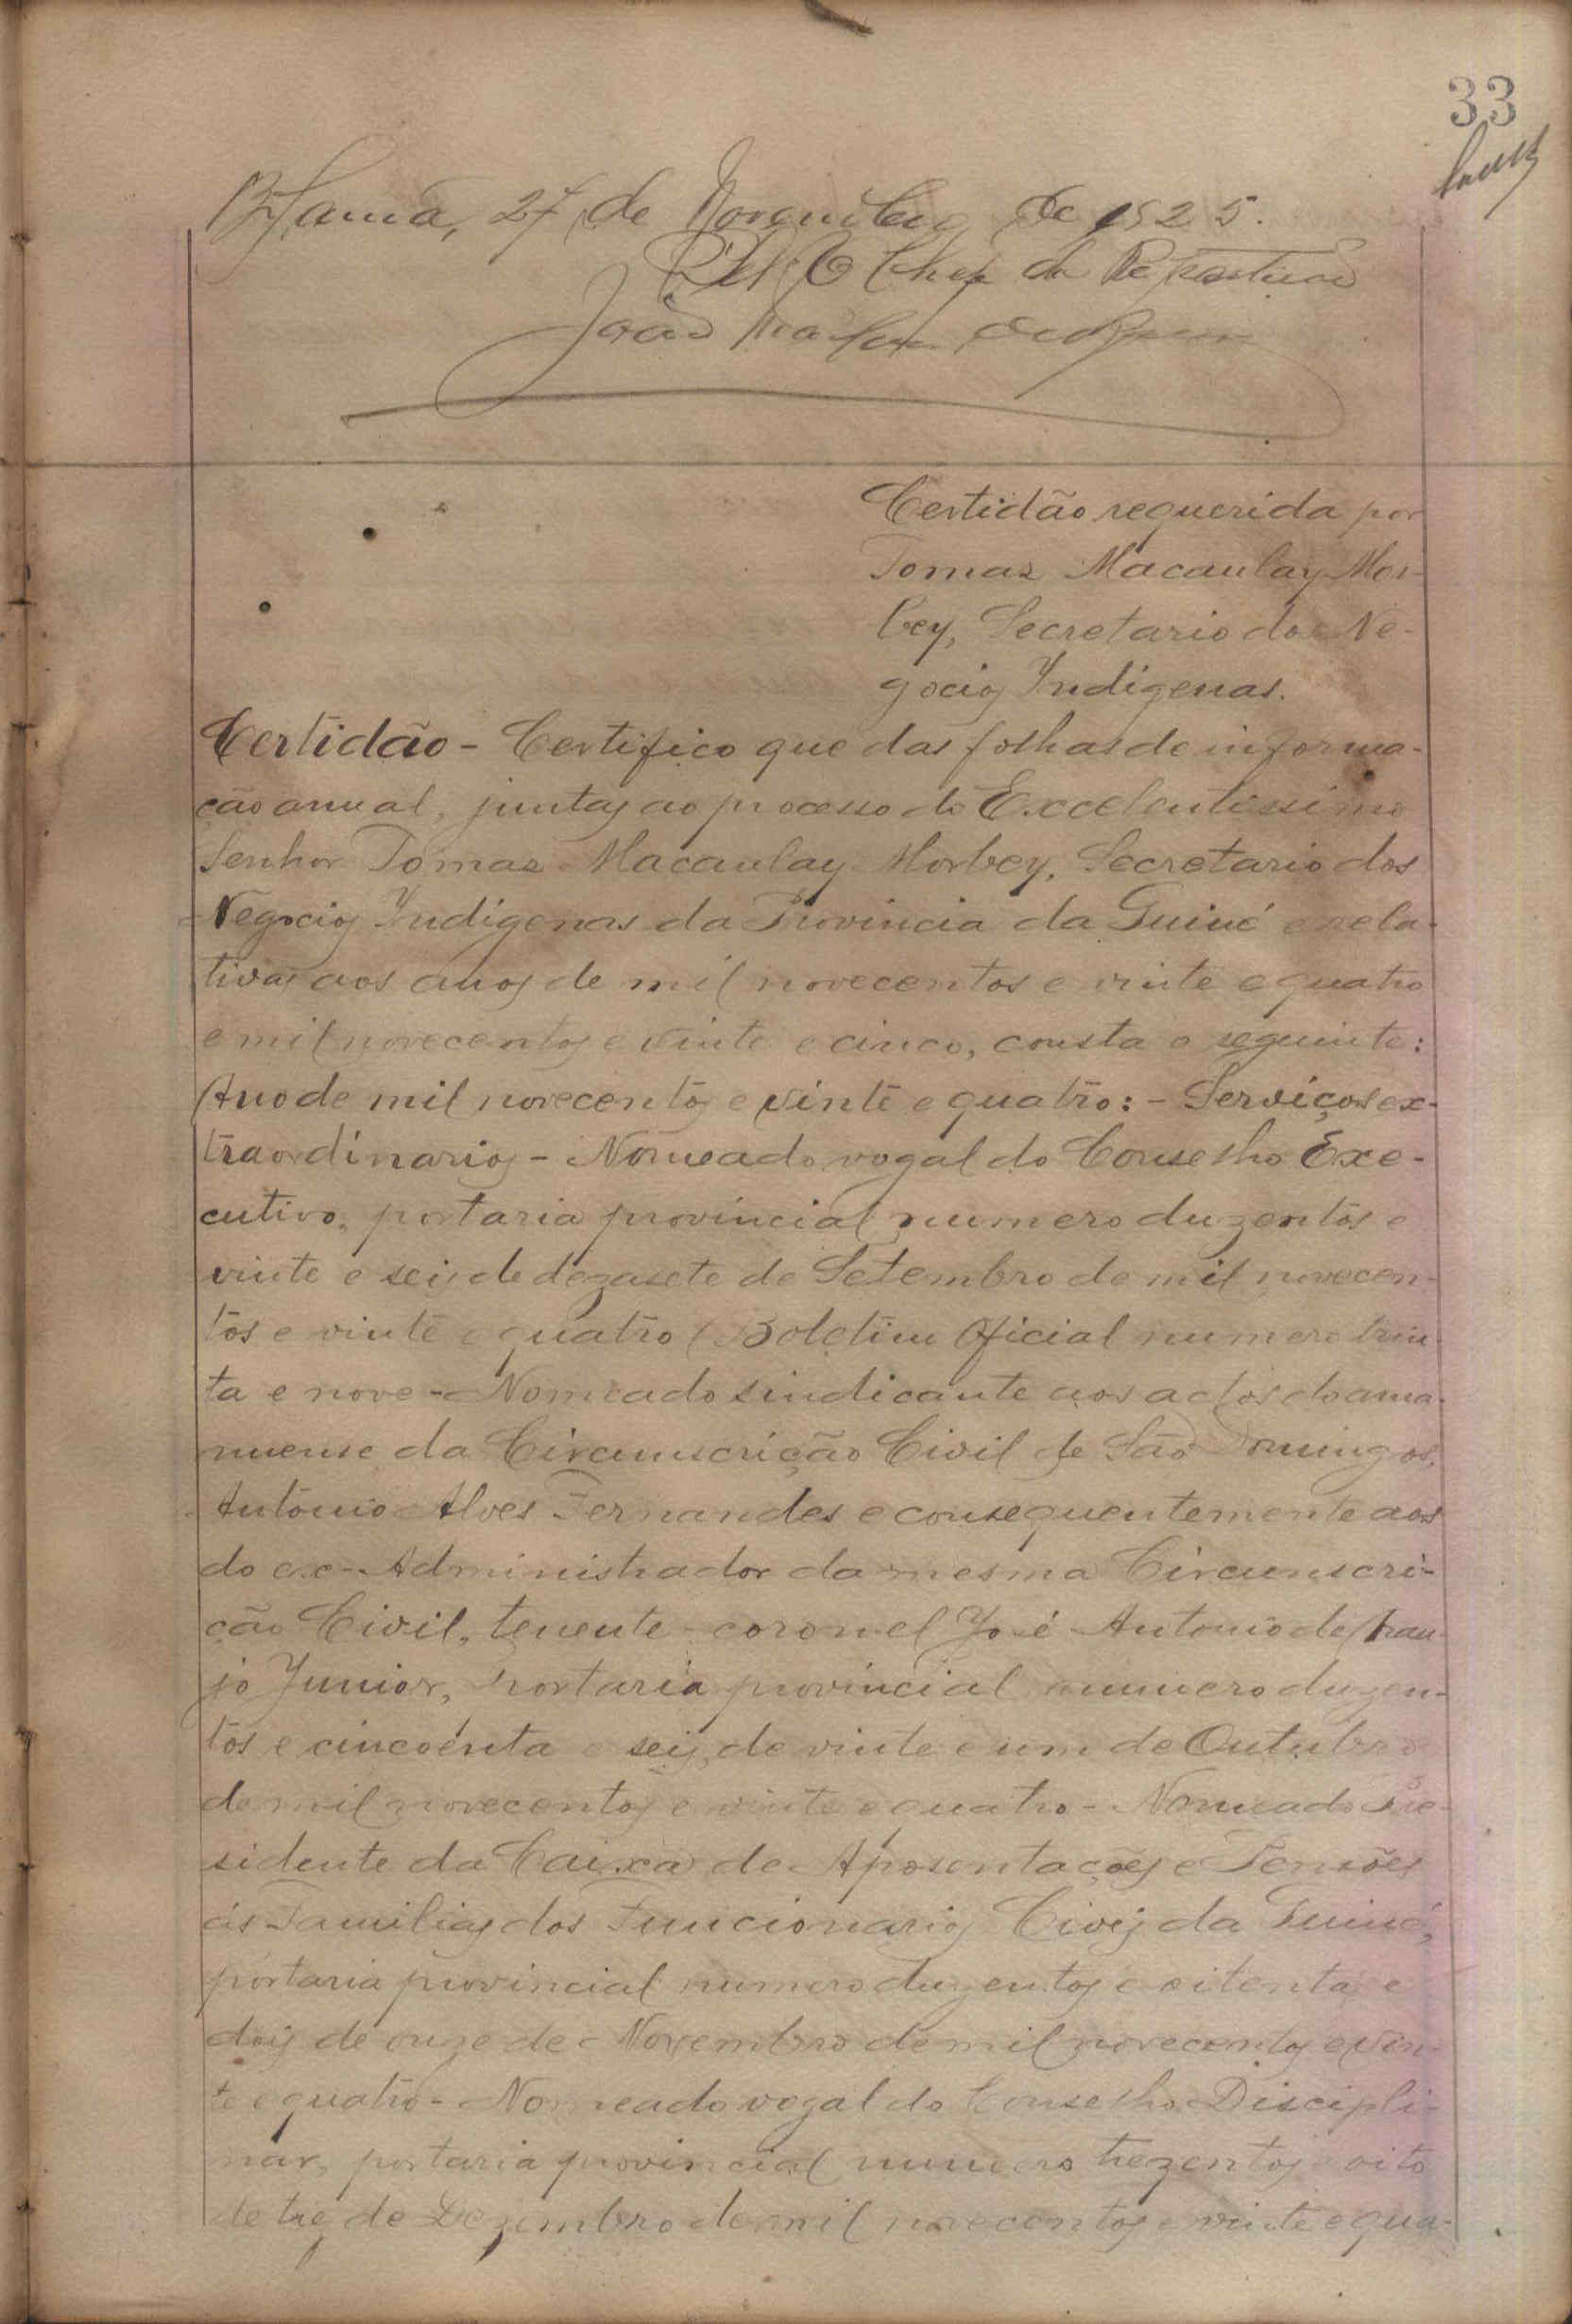 33
Bolama, 27 de Novembro de 1925.
O Chefe da Repartição
João
Certidão requerida por
Tomaz Macaulay Mor-
bey, Secretario dos Ne-
gocios Indigenas.
Certidão - Certifico que das folhas de informa-
ção anual, juntas ao processo do Excelentissimo
Senhor Tomaz Macaulay Morbey, Secretario dos
Negocios Indigenas da Provincia da Guiné e rela-
tivas aos anos de mil novecentos e vinte e quatro
e mil novecentos e vinte e cinco, consta o seguinte:
Ano de mil novecentos e vinte e quatro: - Serviços ex-
traordinarios - Nomeado vogal do Conselho Exe-
cutivo, portaria provincial numero duzentos e
vinte e seis de dezasete de Setembro de mil novecen-
tos e vinte e quatro (Boletim Oficial numero trin-
ta e nove - Nomeado sindicante aos actos do ama-
nuense da Circunscrição Civil de São Domingos,
Antonio Alves Fernandes e consequentemente aos
do ex-Administrador da mesma Circunscri-
ção Civil, tenente-coronel José Antonio de Arau-
jo Junior, portaria provincial numero duzen-
tos e cincoenta e seis, de vinte e um de Outubro
de mil novecentos e vinte e quatro - Nomeado Pre-
sidente da Caixa de Aposentações e Pensões
ás Familias dos Funcionarios Civis da Guiné,
portaria provincial numero duzentos e oitenta e
dois de onze de Novembro de mil novecentos e vin-
te e quatro - Nomeado vogal do Conselho Discipli-
nar, portaria provincial numero trezentos e oito
de tres de Dezembro de mil novecentos e vinte e qua-